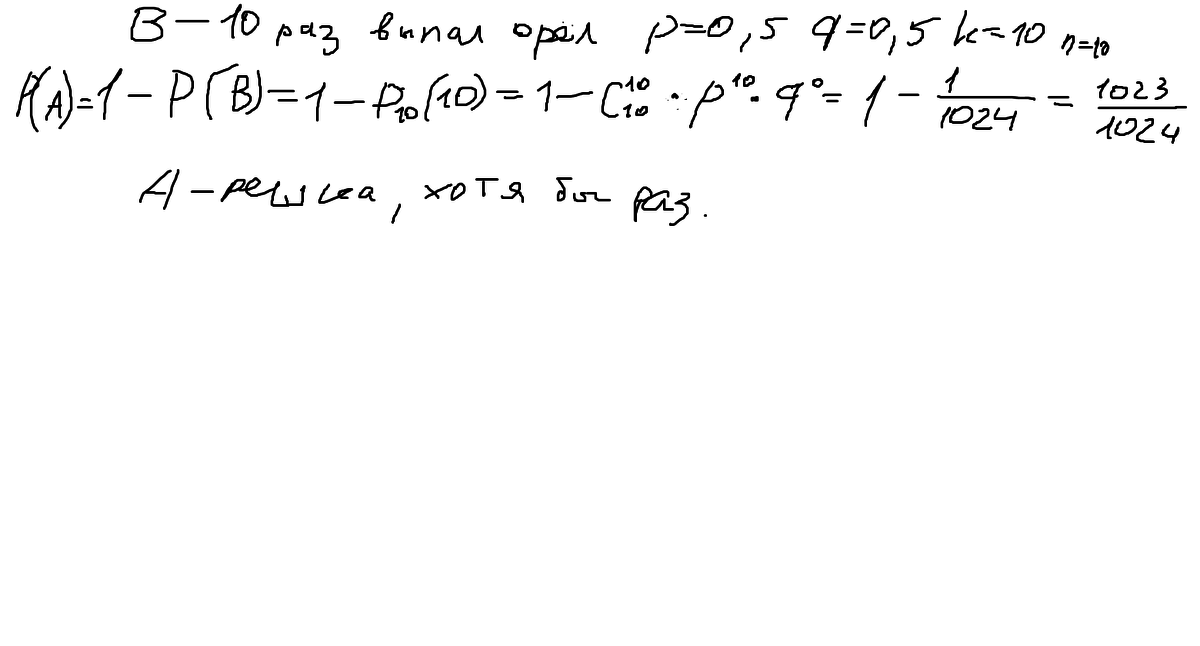 B – 10 раз выпал орёл p=0,5 q=0,5 k=10 n=10
P(A)=1 – P(B)=1–P₁₀(10)=1–C₁₀¹⁰·p¹⁰·q⁰=1–1/1024=1023/1024
A – решка, хотя бы раз.